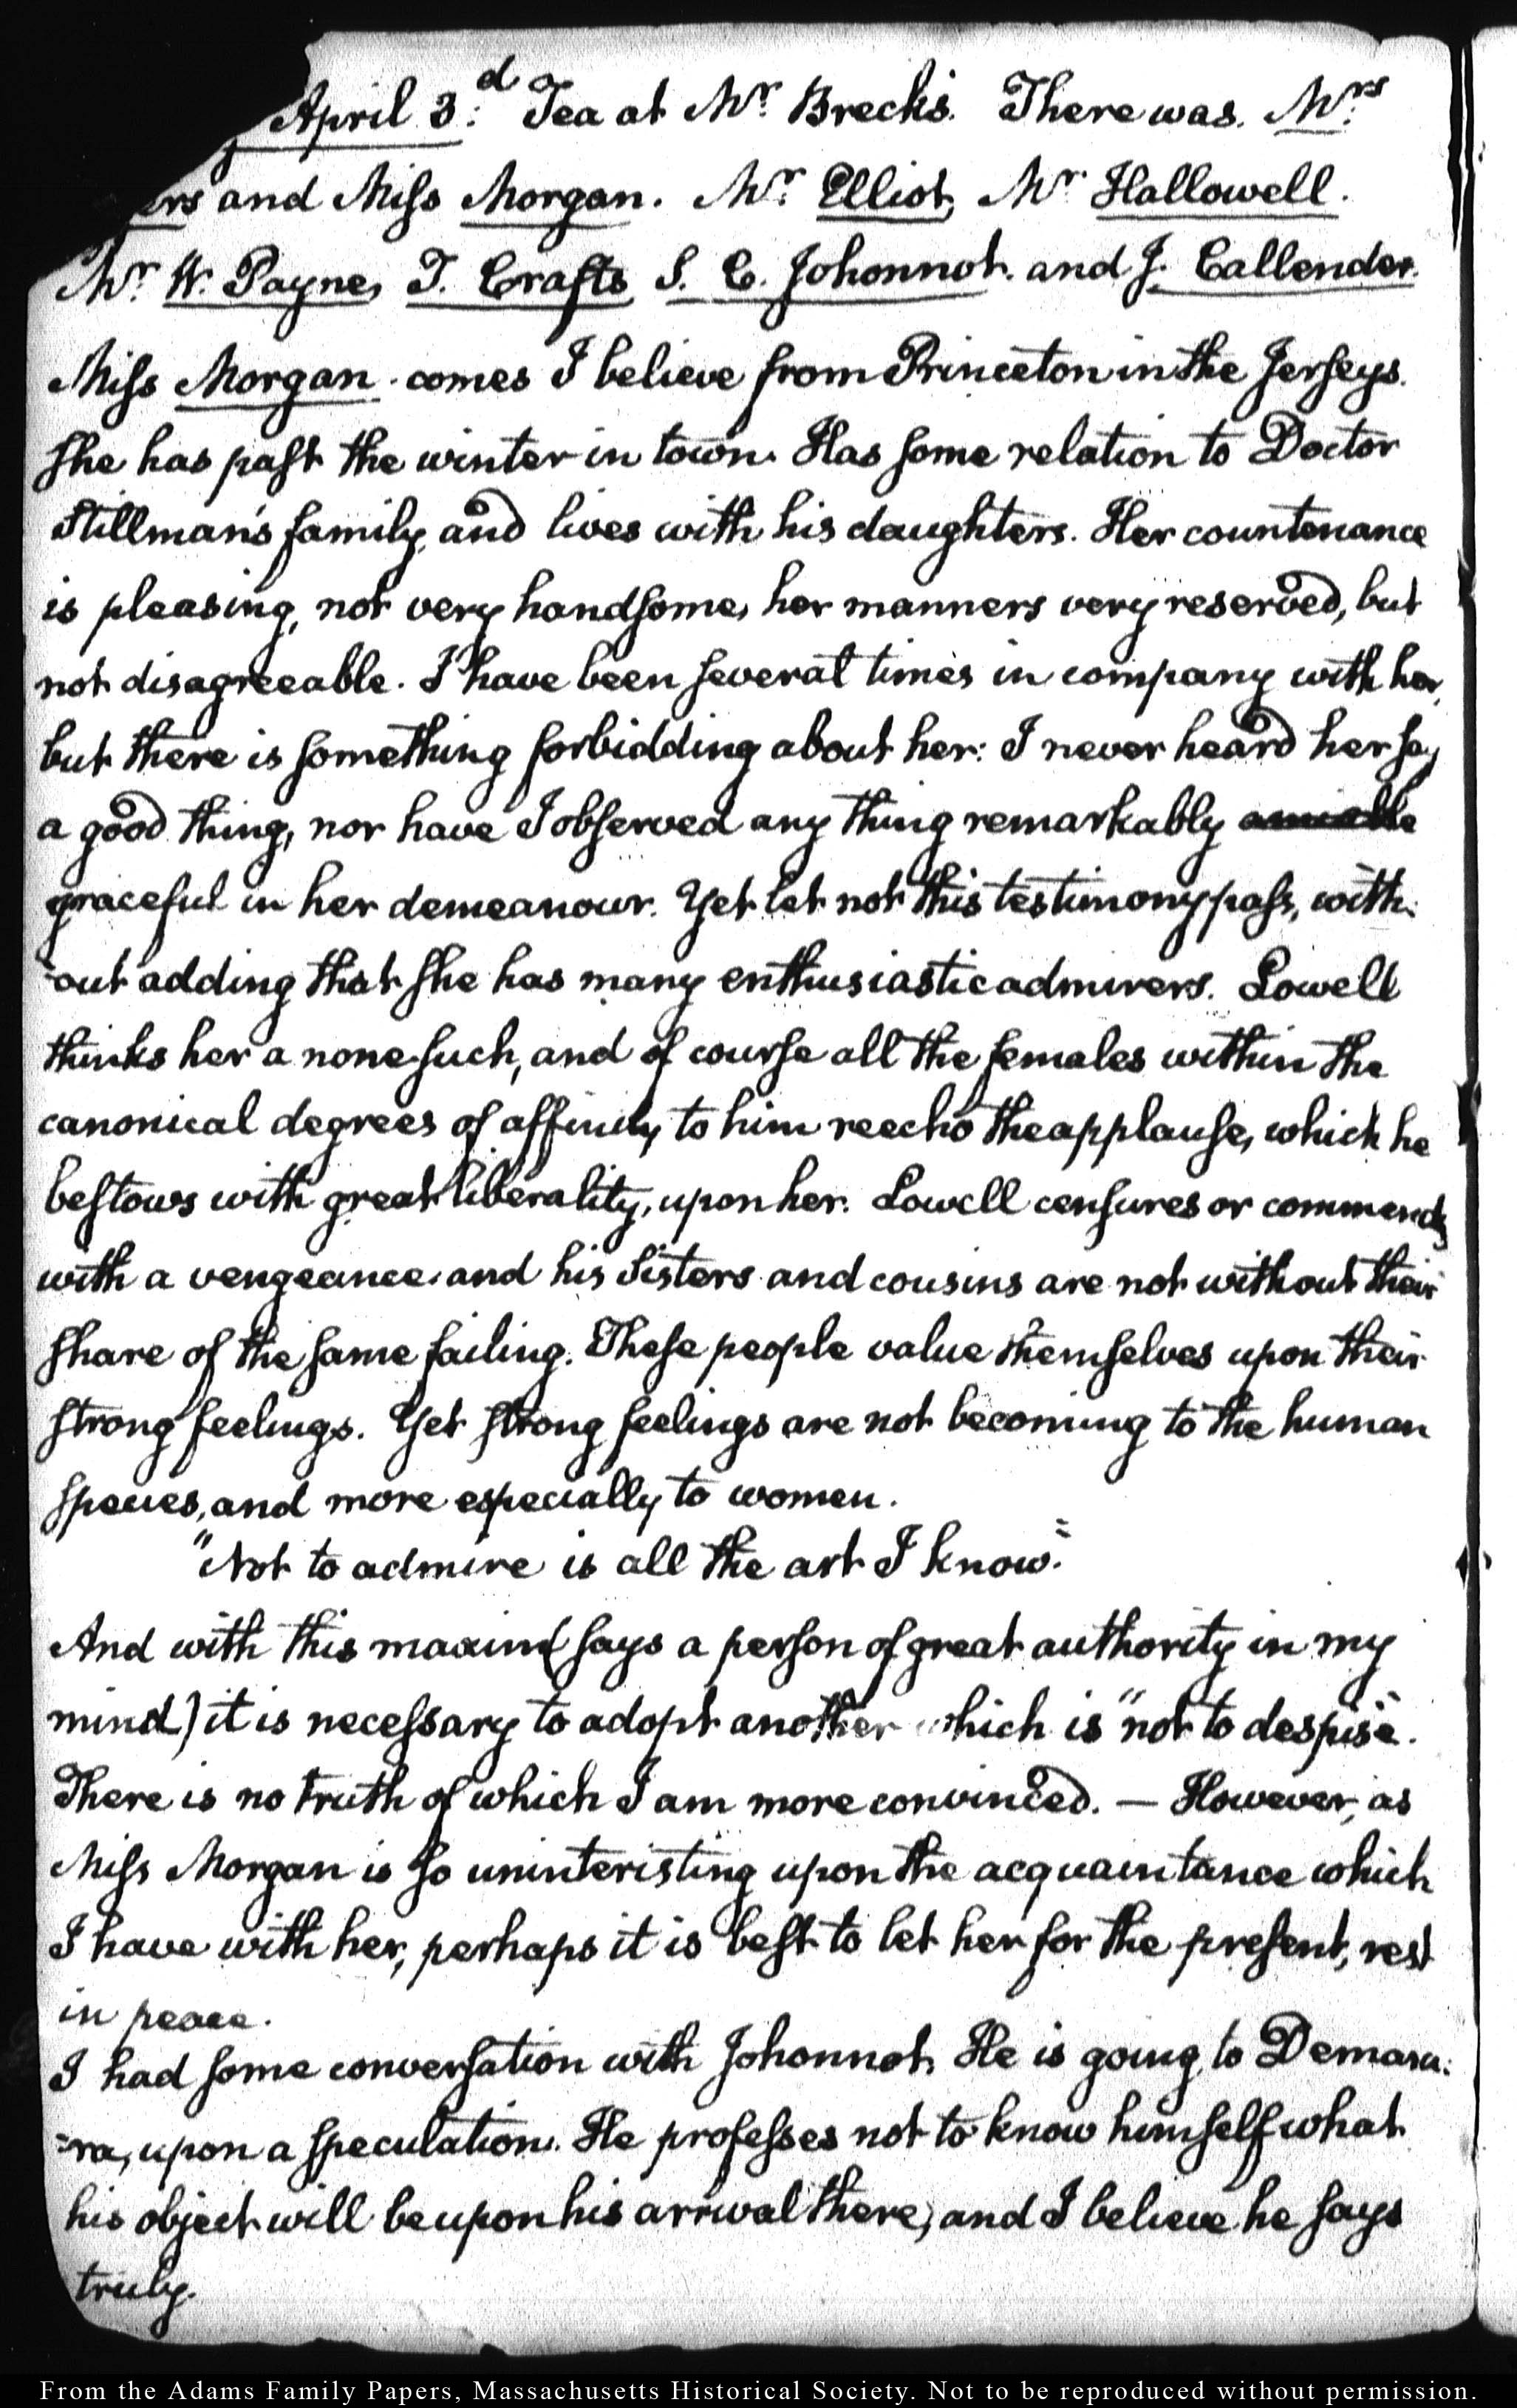 April 3.d Tea at Mr. Breck's. There was. Mrs.
ers and Miss Morgan. Mr. Elliot, Mr. Hallowell.
Mr. W. Payne, T. Crafts, S. C. Johonnot. and J. Callender.
Miss Morgan. comes I believe from Princeton in the Jerseys.
She has past the winter in town. Has some relation to Doctor
Stillman's family, and lives with his daughters. Her countenance
is pleasing, not very handsome, her manners very reserved, but
not disagreeable. I have been several times in company with her,
but there is something forbidding about her: I never heard her say
a good thing, nor have I observed any thing remarkably amiable
graceful in her demeanour. Yet let not this testimony pass, with-
-out adding that she has many enthusiastic admirers. Lowell
thinks her a nonesuch, and of course all the females within the
canonical degrees of affinity to him reecho the applause, which he
bestows with great liberality, upon her. Lowell censures or commends
with a vengeance, and his Sisters and cousins are not without their
share of the same failing. These people value themselves upon their
strong feelings. Yet strong feelings are not becoming to the human
species, and more especially to women.
"Not to admire is all the art I know."
And with this maxim (says a person of great authority in my
mind) it is necessary to adopt another which is "not to despise".
There is no truth of which I am more convinced. — However, as
Miss Morgan is so uninteristing upon the acquaintance which
I have with her, perhaps it is best to let her for the present, rest
in peace.
I had some conversation with Johonnot. He is going to Demara-
-ra, upon a speculation. He professes not to know himself what
his object will be upon his arrival there, and I believe he says
truly.
From the Adams Family Papers, Massachusetts Historical Society. Not to be reproduced without permission.